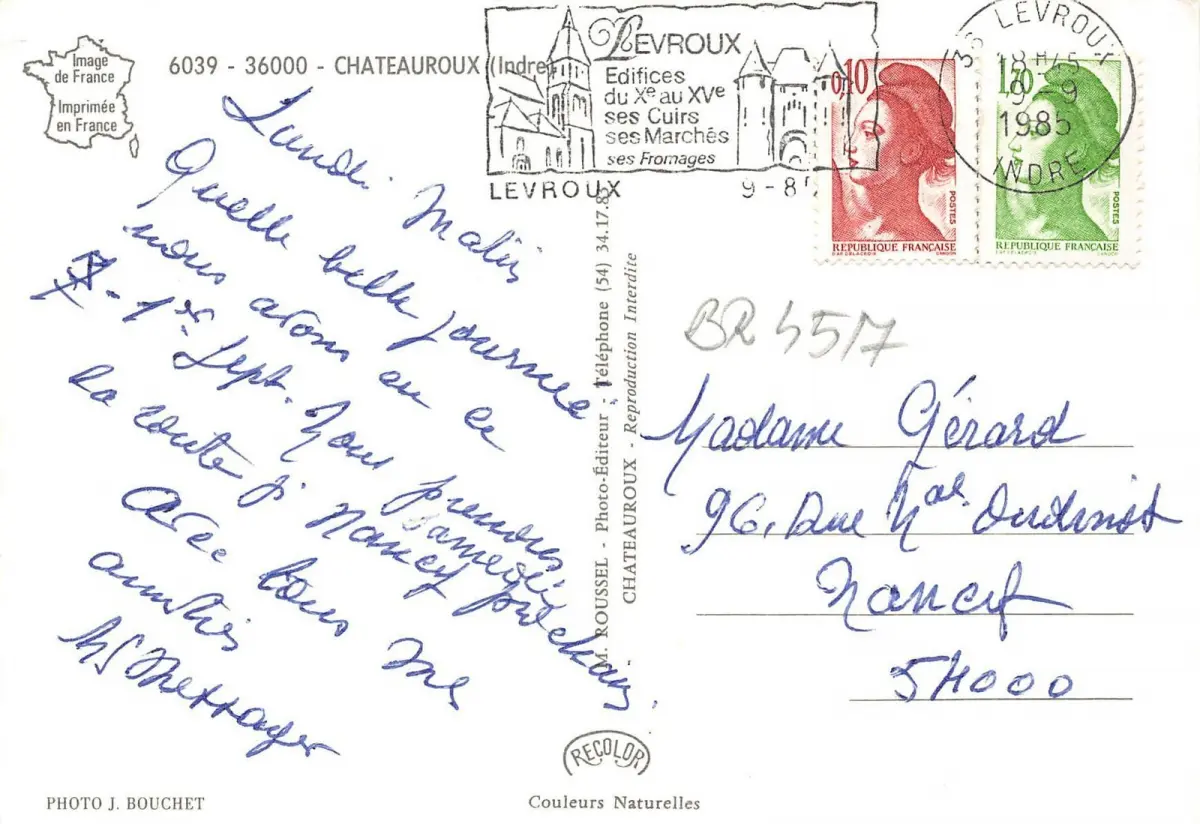 Image
de France
Imprimée
en France
6039 - 36000 - CHATEAUROUX (Indre)
LEVROUX
Edifices
du Xe au XVe
ses Cuirs
ses Marchés
ses Fromages
LEVROUX
9-8
0,10
POSTES
REPUBLIQUE FRANÇAISE
36 LEVROUX
18H45
9-9
1985
INDRE
POSTES
REPUBLIQUE FRANÇAISE
Lundi Matin
Quelle belle journée
nous avons eu ce
1er Sept. Nous prendrons
la route pr Nancy samedi prochain.
avec tous mes
amitiés
Messager
M. ROUSSEL - Photo-Éditeur - Téléphone (54) 34.17.8
CHATEAUROUX - Reproduction Interdite
BR 4517
Madame Gérard
96, Rue Mal Oudinot
Nancy
54000
RECOLOR
PHOTO J. BOUCHET
Couleurs Naturelles